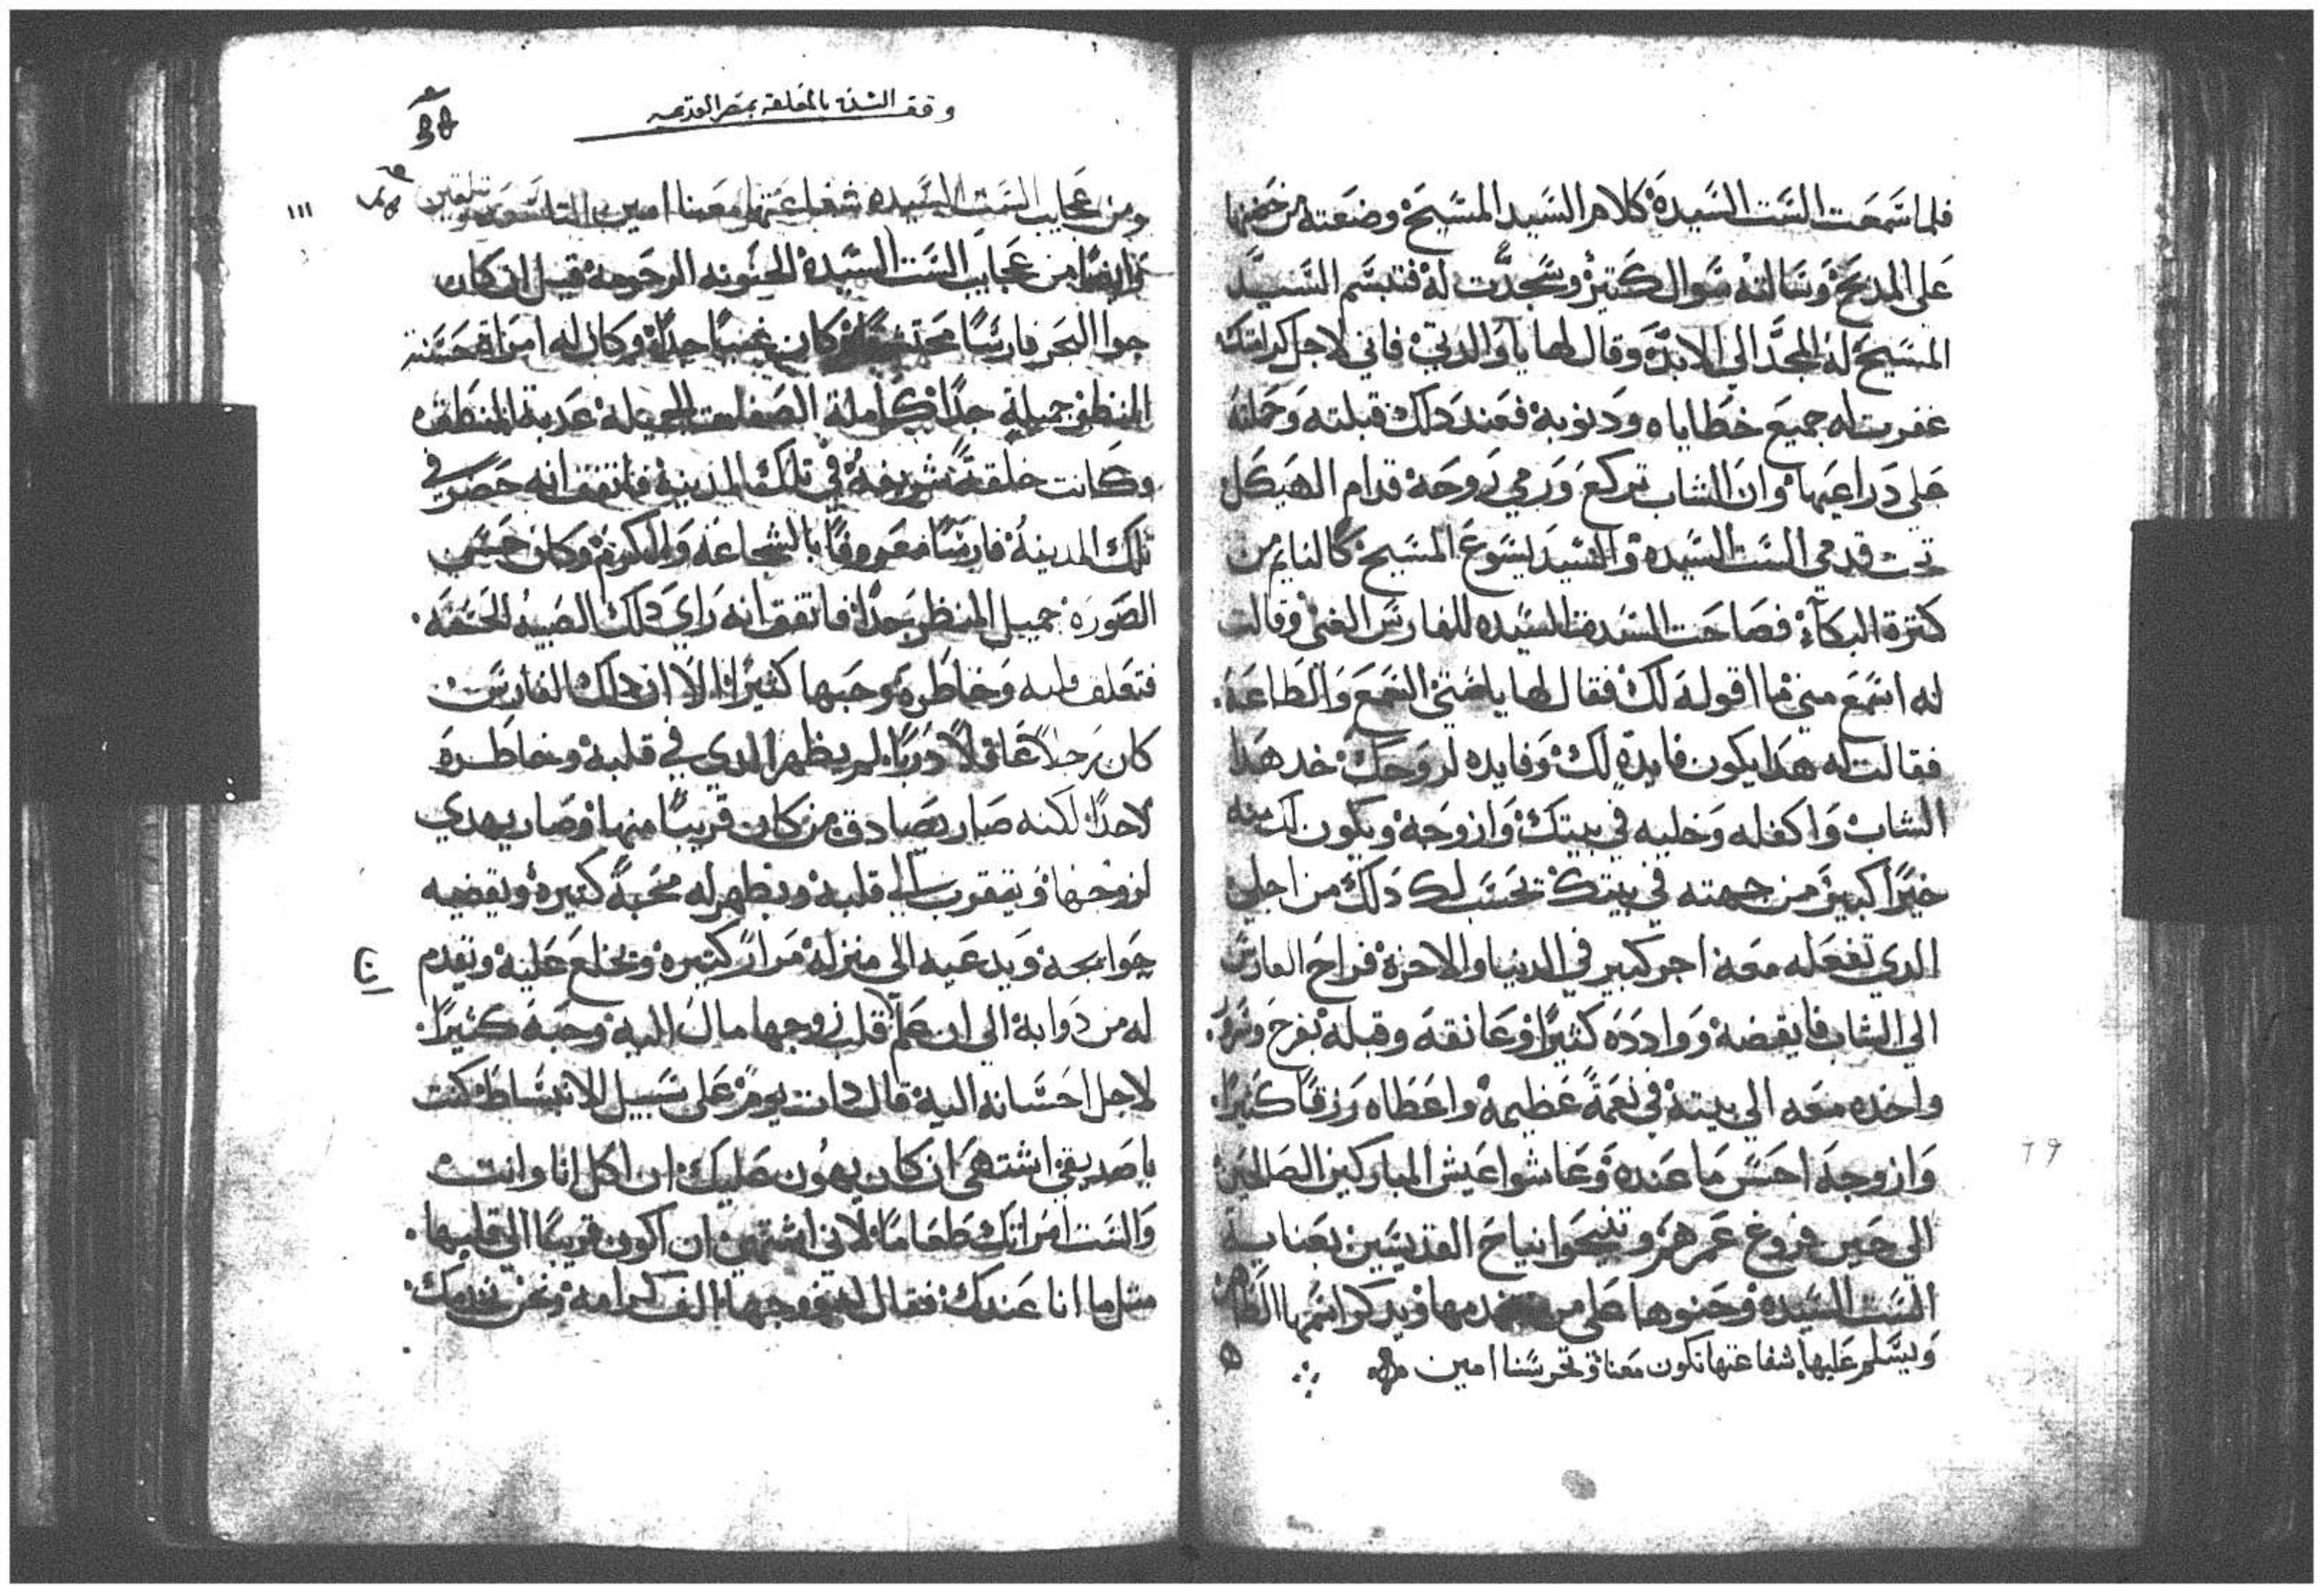 فلما سَمعَت السَت السَيدة كلام السَيد المسَيح وضعَته من حَضنها
عَلي المدبَح وَسَالته سَوال كَتير وسَجدَت له فتبسَم السَيد
المسَيح له المجَد الي الابد وقال لها يا والدتي فاني لاجل كرامتك
غفرت له جميع خطاياه ودنوبه فعند دلك قبلته وَحملته
عَلي دَراعيها وان الشاب تركع وَرمي رَوحَه قدام الهيَكل
تحت قدمي السَت السَيده والسَيد يسَوع المسَيح كالنايم من
كترة البكاء فصَاحَت السَت السَيده للفارسَ الغني وقالت
له اسَمع مني ما اقوله لك فقال لها يا سَتي السَمع وَالطاعَة.
فقالت له هَدا يكون فايدة لك وَفايده لروَحَك خد هَدا
الشاب وَاكفله وَخليه في بيتك وَازوجَه ويكون لك منه
خيرًا كبير من جهته في بيتك تحسَب لك دَلك من اجلي
الدي تفعَله معَه اجر كبير في الدنيا والاخرة فراح الفارسَ
الي الشاب فايقضه ووادده كتيرًا وعَانقه وقبله بفرح وسَرور.
واخده معَه الي بيته في نعَمةً عَظيمة واعَطاه رَزقًا كَتيرًا.
وَازوجه احسَن مَا عَنده وَعَاشوا عَيش المباركين الصَالحين
الي حَين فروغ عَمرهم وتنيحَوا نياحَ القديسَين بصَناية
السَت السَيده وحَنوها عَلي من يخدمها ويدكر اسَمها الطاهر
وَيسَلم عَليها شفاعَتها تكون معَنا وتحرسَنا امين
وقف الست بالمعلقة بمصر القديمه
ومن عَجايب السَت السَيده شفاعَتها معَنا امين
وايضًا من عَجايب السَت السَيدة الحنونه الرحَومة قيل ان كان
جوا البحَر فارسًَا محتشمًا وكان غنيًا جدًا وكان له امرَاة حَسَنة
المنظر جميلة جدًا كاملة الصَفات الجميلة عَدبة المنطق
وكانت خلقة شريفة في تلك المدينة فاتفق انه حَضر في
تلك المدينة فارسًَا معَروفًا بالشجاعَة وَالكرم وكان حَسَن
الصَورة جميل المنظر جدًا فاتفق انه رَاي تلك الصَبيه الحَسَنه.
فتعَلق قلبه وَخاطَره وحَبها كتيرًا الا ان دلك الفارسَ
كان رَجلاً عَاقلاً دَربًا لم يظهر الدي في قلبه وخاطَره
لاحدًا لكنه صَار يصَادق من كان قريبًا منها وصَار يهدي
لزوَجها وَيتقرب الي قلبه ويظهر له محَبةً كتيرة ويقضيه
حوَايجه وَيدعَيه الي منزله مَرارً كتيره ويخلع عَليه ويقدم
له من دَوابه الي ان عَلم قلب زوجها مال اليه وحَبه كتيرًا.
لاجل احسَانه اليه قال دات يومً عَلي سَبيل الانبسَاط كنت
يا صَديقي اشتهي ان كان يهون عَليك ان اكل انا وانت
وَالسَت امرَاتك طَعَامًا لاني اشتهي ان اكون قريبًا الي قلبها.
متل ما انا عَندك فقال له زوجها الف كرامة ونحن نخدمك.